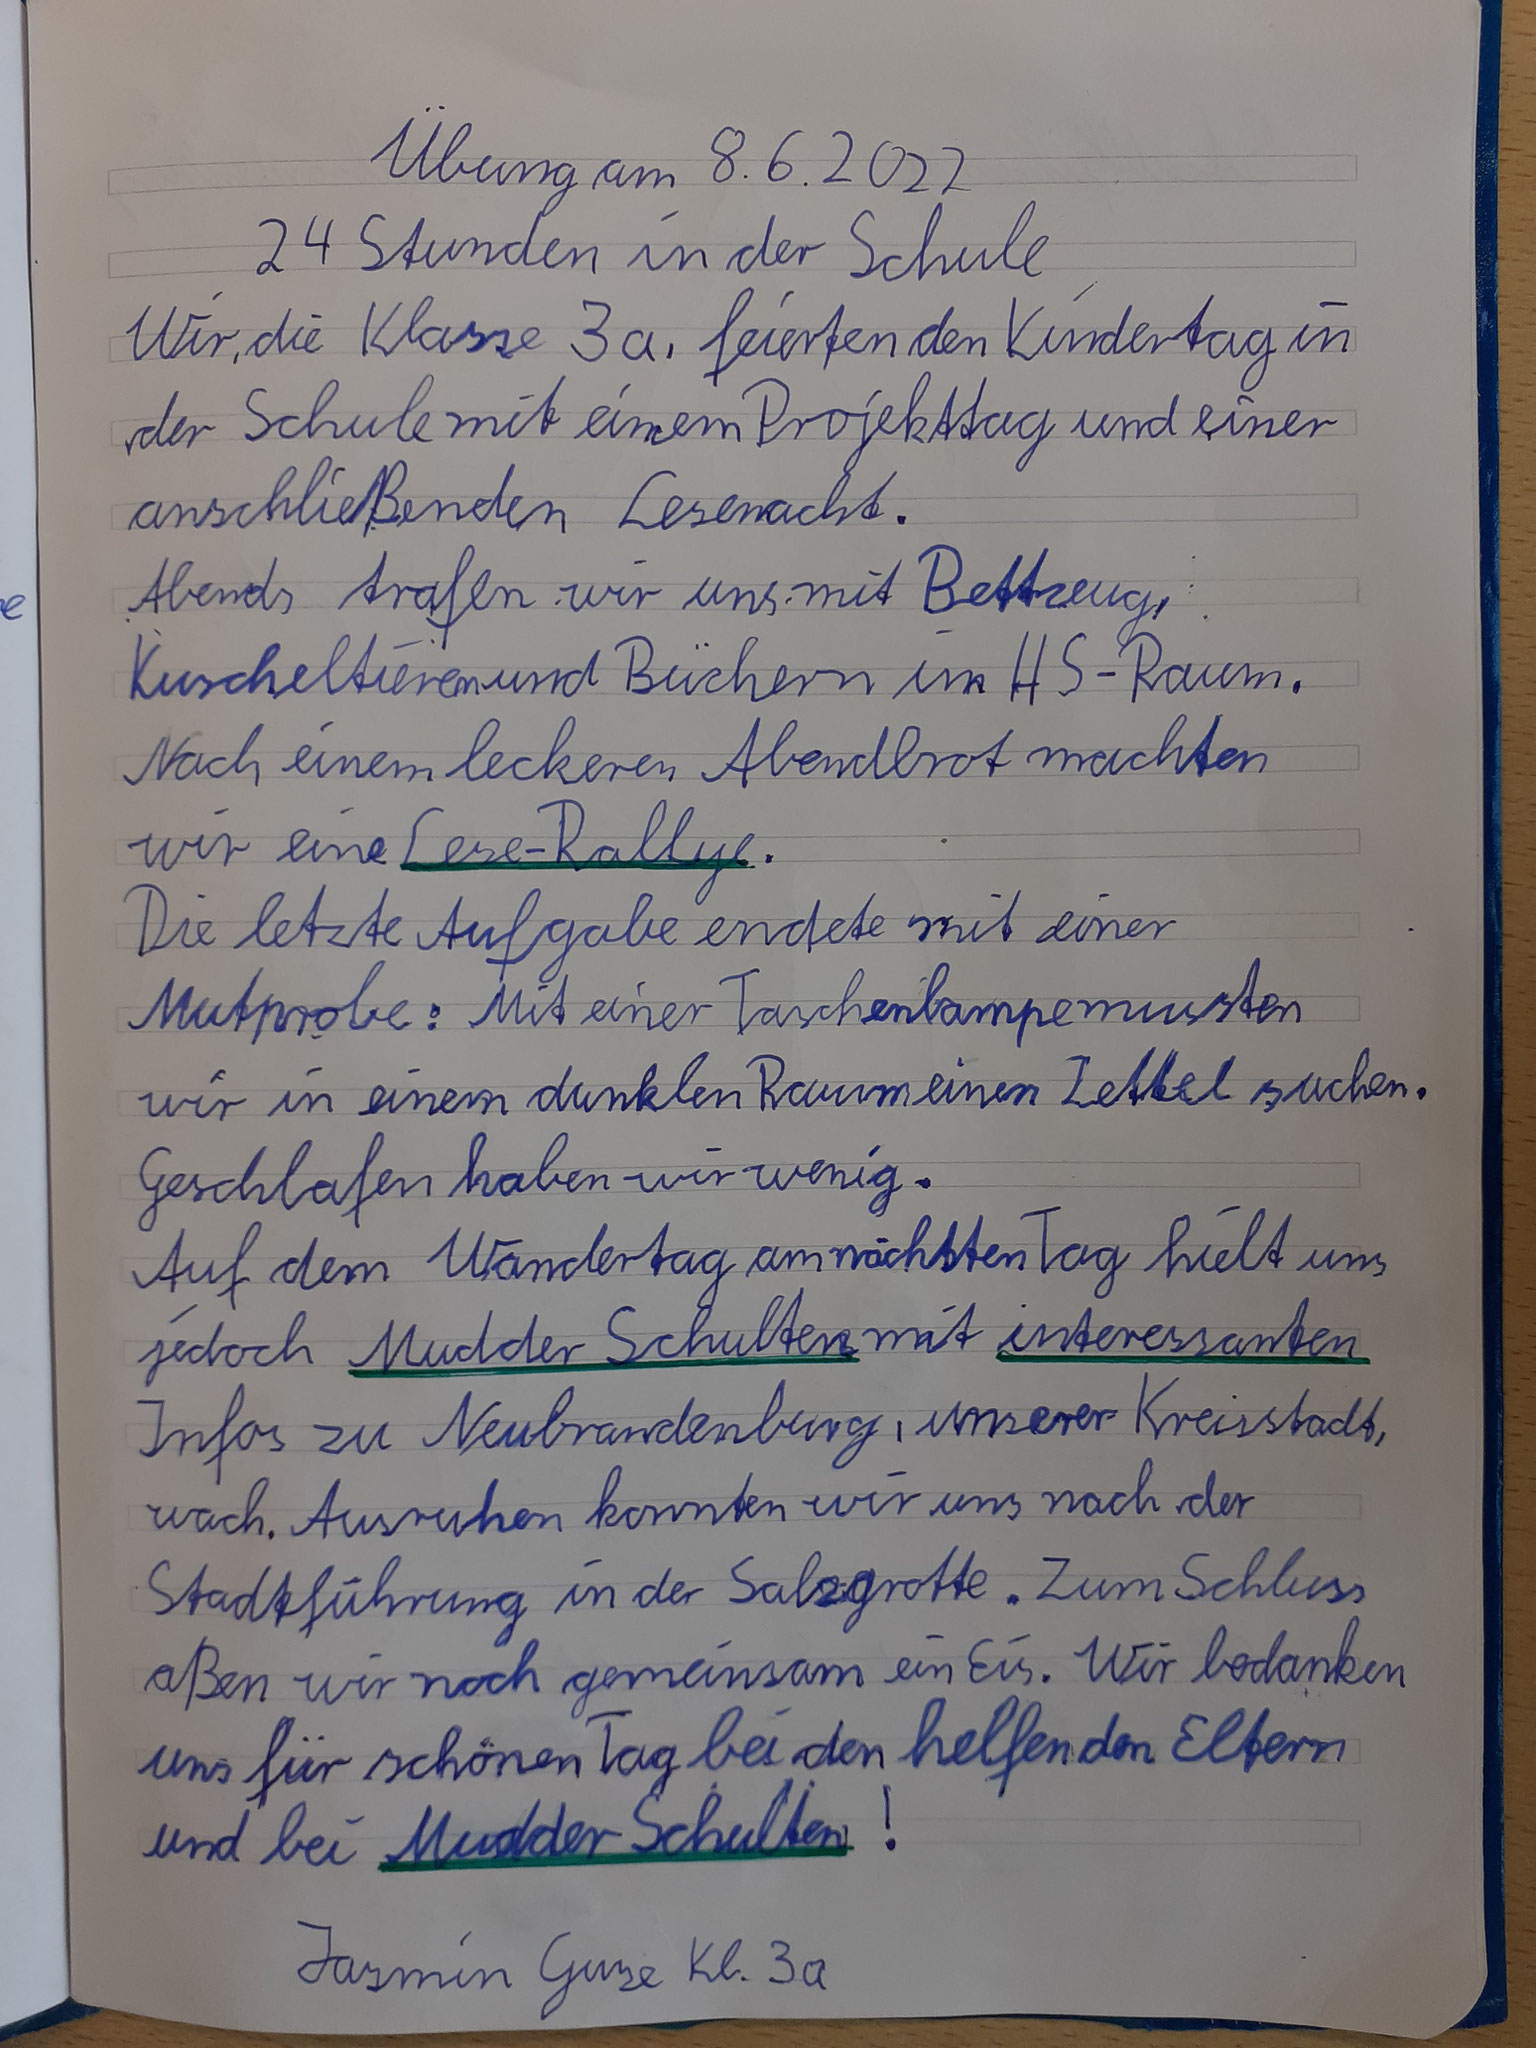 Übung am 8.6.2022
24 Stunden in der Schule
Wir, die Klasse 3a, feierten den Kindertag in
der Schule mit einem Projekttag und einer
anschließenden Lesenacht.
Abends trafen wir uns mit Bettzeug,
Kuscheltieren und Büchern im HS-Raum.
Nach einem leckeren Abendbrot machten
wir eine Lese-Rallye.
Die letzte Aufgabe endete mit einer
Mutprobe: Mit einer Taschenlampe mussten
wir in einem dunklen Raum einen Zettel suchen.
Geschlafen haben wir wenig.
Auf dem Wandertag am nächsten Tag hielt uns
jedoch Mudder Schulten mit interessanten
Infos zu Neubrandenburg, unserer Kreisstadt,
wach. Ausruhen konnten wir uns nach der
Stadtführung in der Salzgrotte. Zum Schluss
aßen wir noch gemeinsam ein Eis. Wir bedanken
uns für schönen Tag bei den helfenden Eltern
und bei Mudder Schulten!
Jasmin Guse Kl. 3a